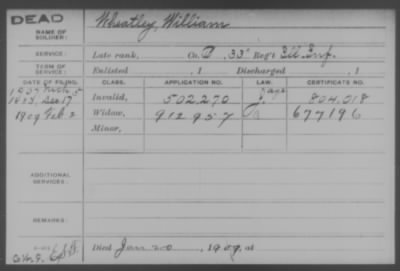 DEAD
NAME OF SOLDIER:
Wheatley, William
SERVICE:
Late rank, Co. D, 33" Reg't Ill. Inf.
TERM OF SERVICE:
Enlisted , 1 Discharged , 1
DATE OF FILING. CLASS. APPLICATION NO. LAW. CERTIFICATE NO.
Invalid, 502,270 804,018
1909 Feb 2 Widow, 912957 677196
Minor,
ADDITIONAL SERVICES:
REMARKS:
Died Jan 20, 1909, at